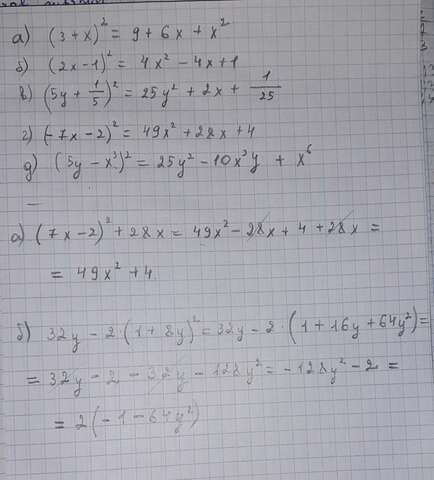 а) (3+x)² = 9 + 6x + x²
б) (2x-1)² = 4x² - 4x + 1
в) (5y + 1/5)² = 25y² + 2x + 1/25
г) (-7x-2)² = 49x² + 28x + 4
д) (5y - x³)² = 25y² - 10x³y + x⁶
а) (7x-2)² + 28x = 49x² - 28x + 4 + 28x =
= 49x² + 4
б) 32y - 2·(1+8y)² = 32y - 2·(1+16y+64y²) =
= 32y - 2 - 32y - 128y² = -128y² - 2 =
= 2(-1-64y²)